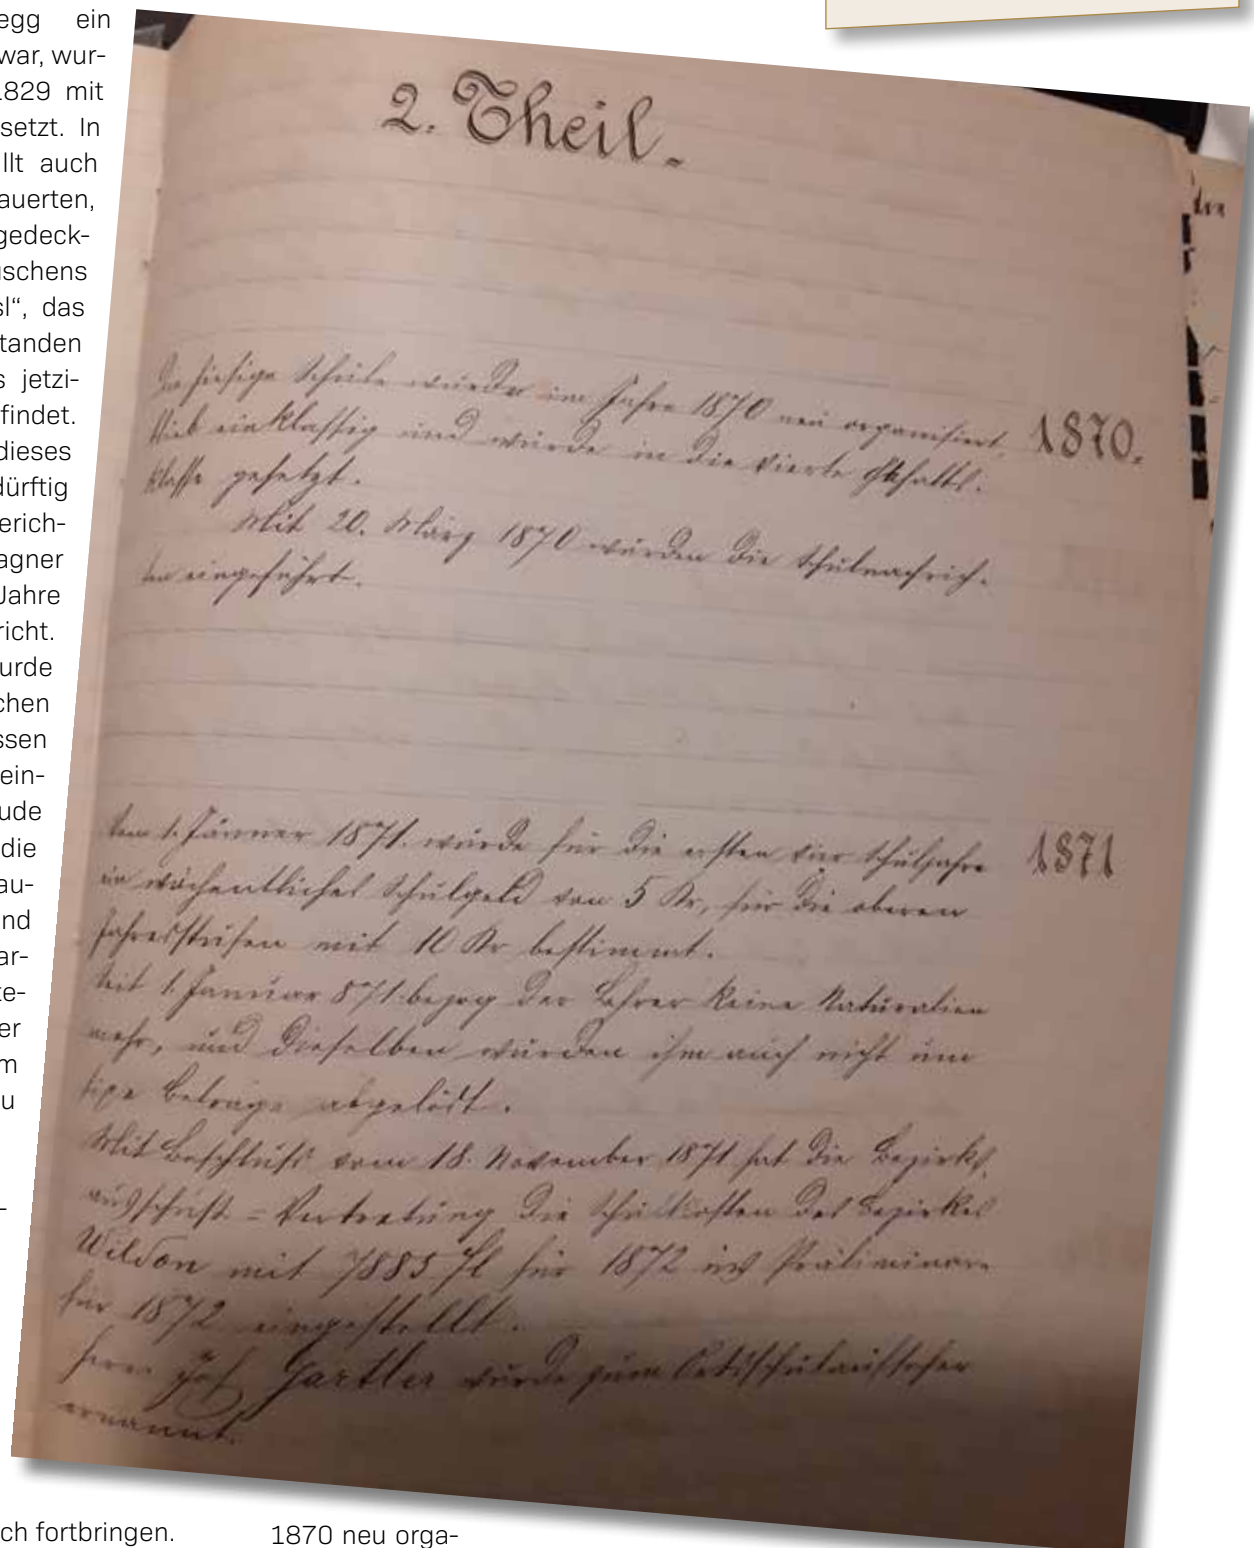 egg ein
war, wur-
1829 mit
setzt. In
llt auch
auerten,
gedeck-
uschens
sl“, das
tanden
s jetzi-
findet.
dieses
dürftig
erich-
agner
Jahre
richt.
urde
chen
ssen
ein-
ude
die
au-
nd
ar-
te-
er
m
u
-
ch fortbringen.
1870 neu orga-
2. Theil.
Die hiesige Schule wurde im Jahre 1870 neu organisiert, 1870.
blieb einklassig und wurde in die vierte Gehalts-
klasse gesetzt.
Mit 20. März 1870 wurden die Schulnachrich-
ten eingeführt.
Vom 1. Jänner 1871. wurde für die ersten vier Schuljahre 1871
ein wöchentliches Schulgeld von 5 Kr, für die oberen
Jahresstufen mit 10 Kr bestimmt.
Seit 1. Januar 871. bezog der Lehrer keine Naturalien
mehr, und dieselben wurden ihm auch nicht um
fixe Beträge abgelöst.
Mit Beschluß vom 18. November 1871 hat die Bezirks-
= Vertretung die Schulkosten des Bezirkes
Wildon mit 7885 fl für 1872 ins Präliminare
für 1872 eingestellt.
Herr Jos. Gartler wurde zum Ortsschulaufseher
ernannt.